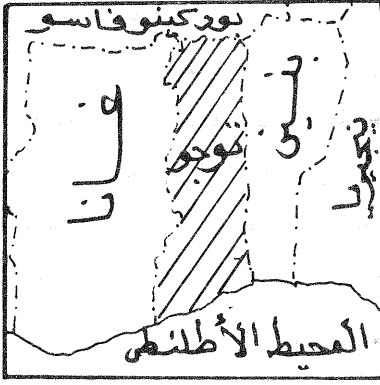 بوركينوفاسو
غانا
توجو
نيجيريا
المحيط الأطلنطي